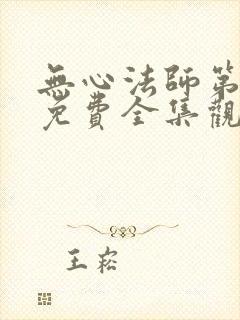 無心法師第
免費全集觀
王崧